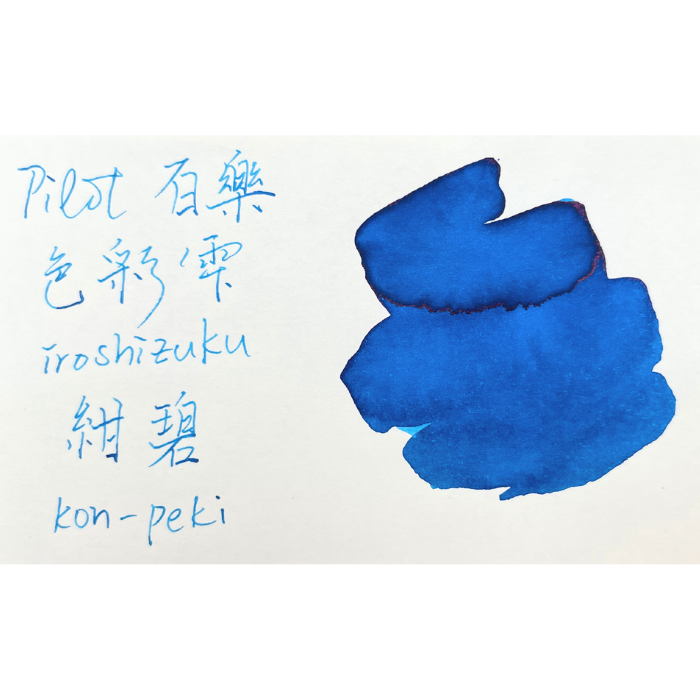 Pilot 百樂
色彩雫
iroshizuku
紺碧
kon-peki